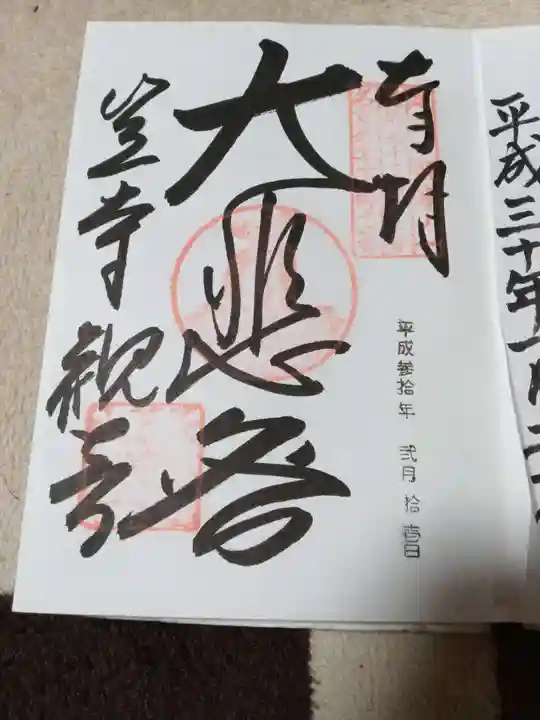 平成三十年一月二十
奉拝
平成参拾年 弐月 拾壱日
大悲閣
笠寺観音